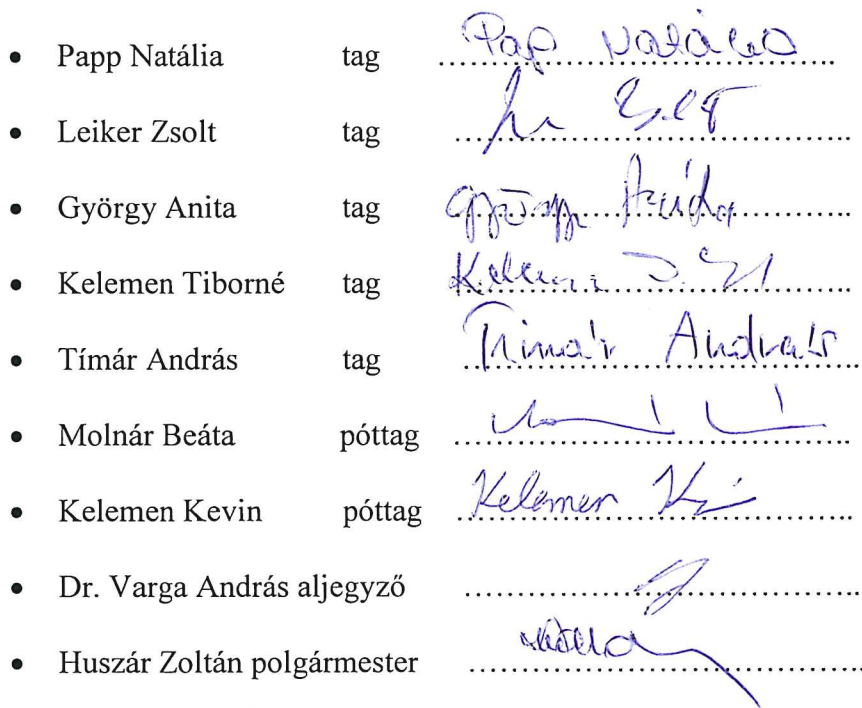 • Papp Natália tag Pap Natália
• Leiker Zsolt tag
• György Anita tag György Anita
• Kelemen Tiborné tag Kelemen
• Tímár András tag Tímár András
• Molnár Beáta póttag
• Kelemen Kevin póttag Kelemen
• Dr. Varga András aljegyző
• Huszár Zoltán polgármester